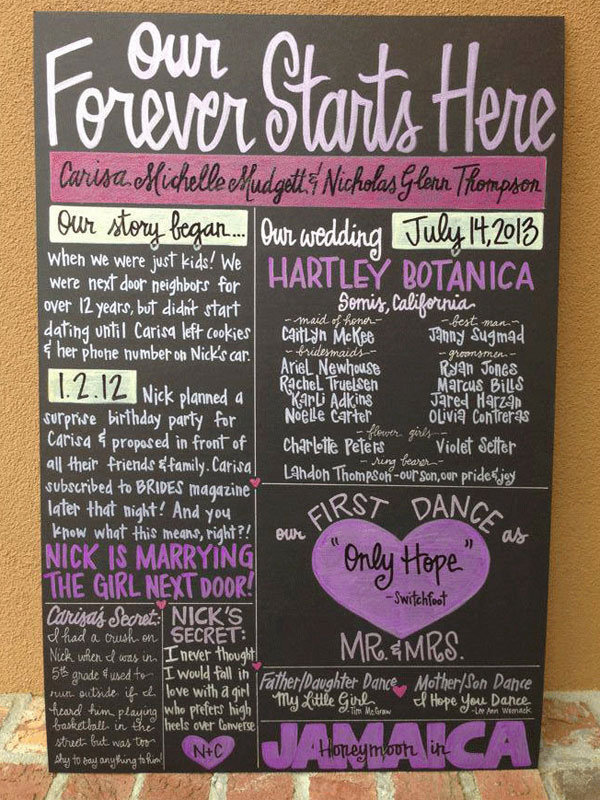 our
Forever Starts Here
Carisa Michelle Mudgett & Nicholas Glenn Thompson
Our story began...
When we were just kids! We
were next door neighbors for
over 12 years, but didn't start
dating until Carisa left cookies
& her phone number on Nick's car.
1.2.12 Nick planned a
surprise birthday party for
Carisa & proposed in front of
all their friends & family. Carisa
subscribed to BRIDES magazine
later that night! And you
know what this means, right?!
NICK IS MARRYING
THE GIRL NEXT DOOR!
Carisa's Secret:
I had a crush on
Nick when I was in
5th grade & used to
run outside if I
heard him playing
basketball in the
street but was too
shy to say anything to him!
NICK'S
SECRET:
I never thought
I would fall in
love with a girl
who prefers high
heels over Converse
N+C
Our wedding July 14, 2013
HARTLEY BOTANICA
Somis, California
-maid of honor-
Caitlyn McKee
-bridesmaids-
Ariel Newhouse
Rachel Truelsen
Karli Adkins
Noelle Carter
-best man-
Janny Sugmad
-groomsmen-
Ryan Jones
Marcus Bills
Jared Harzan
Olivia Contreras
-flower girls-
Charlotte Peters Violet Setter
-ring bearer-
Landon Thompson-our son, our pride & joy
our FIRST DANCE as
"Only Hope"
-Switchfoot
MR. & MRS.
Father/Daughter Dance
My Little Girl
-Tim McGraw
Mother/Son Dance
I Hope You Dance
-Lee Ann Womack
JAMAICA
Honeymoon in